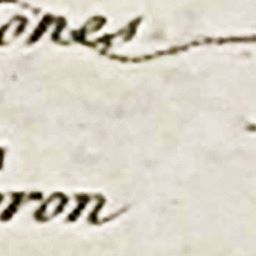 ones
ron